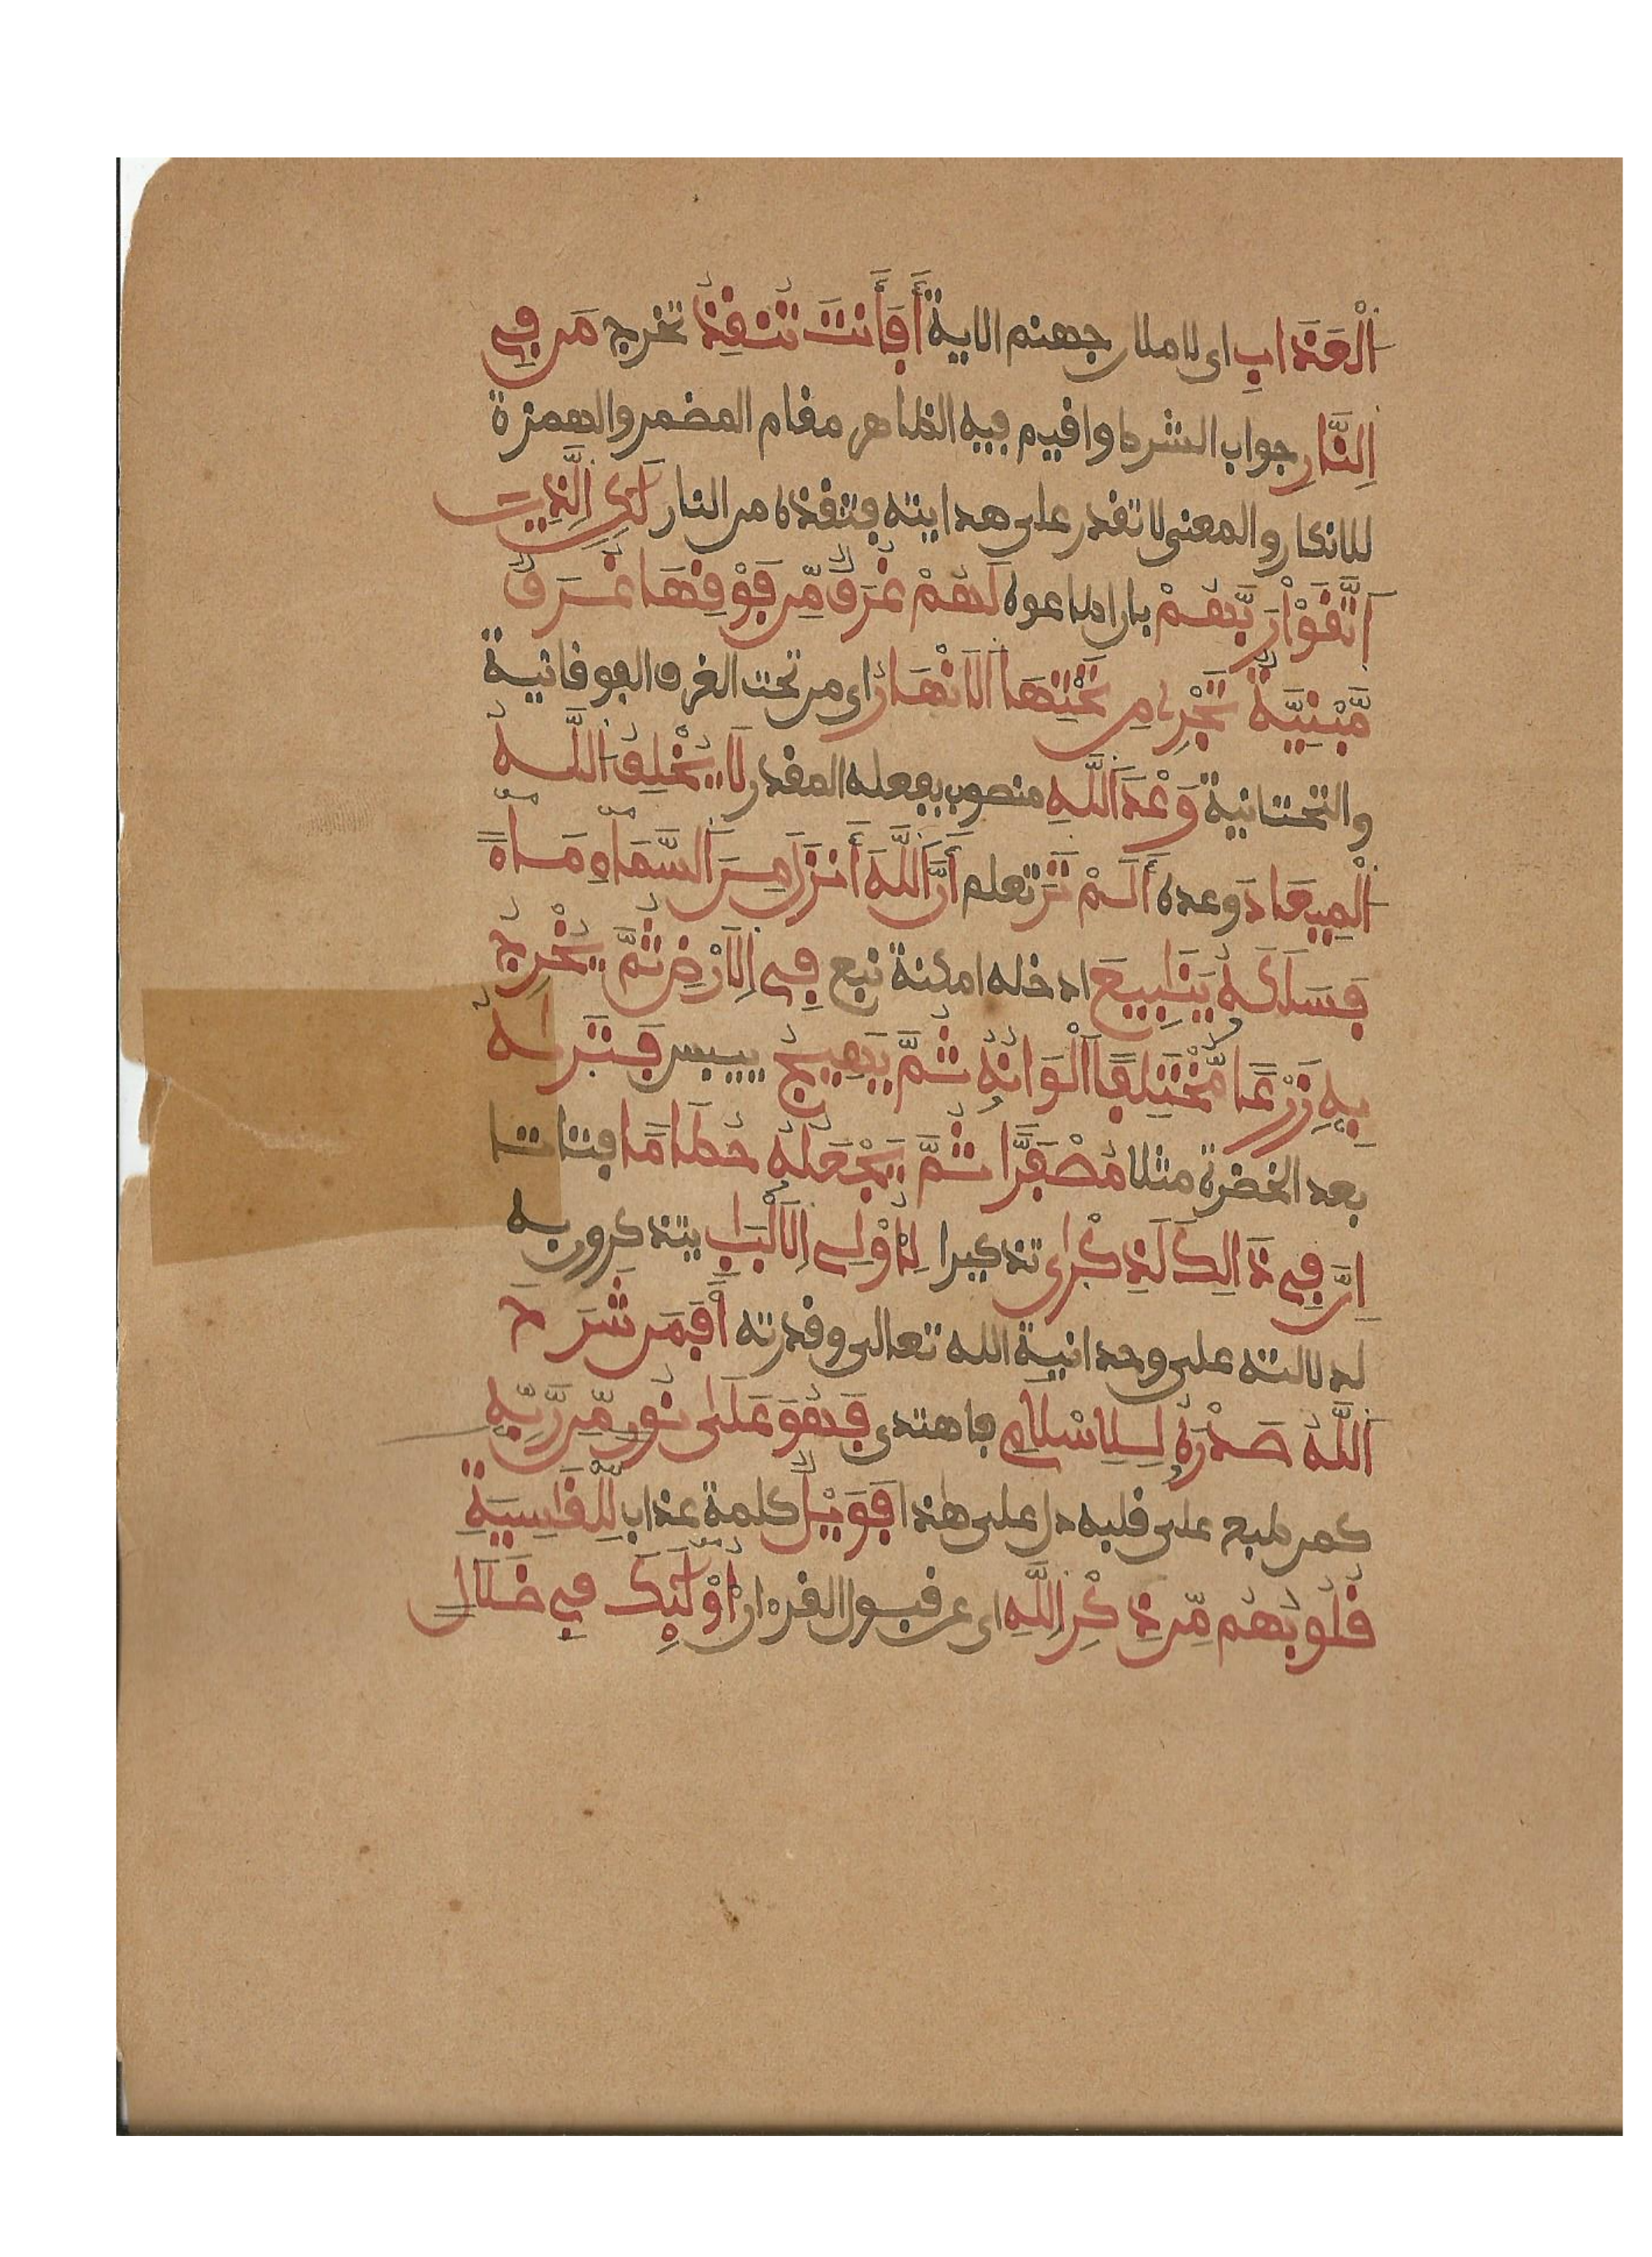 اَلْعَذَابِ اى لاملان جهنم الاية أَفَأَنتَ تُنقِذُ تخرج مَن فِي
اِلنّارِ جواب الشرط وافيم فيه الظاهر مقام المضمر والهمزة
للانكار والمعنى لا تقدر على هدايته فتنقذه من النار لَكِنِ اِلذِينَ
اَتَّقَوْاْ رَبَّهُمْ بان اطاعوه لَهُمْ غُرَفٌ مِّن فَوْقِهَا غُرَفٌ
مَّبْنِيَّةٌ تَجْرِي مِن تَحْتِهَا اَلَانْهَارُ اى من تحت الغرف الفوقانية
والتحتانية وَعْدَ اَللَّهِ منصوب بفعله المقدر لَا يُخْلِفُ اللَّهُ
اُلْمِيعَادَ وعده أَلَمْ تَرَ تعلم أَنَّ اَللَّهَ أَنزَلَ مِنَ اَلسَّمَاءِ مَاءً
فَسَلَكَهُ يَنَابِيعَ ادخله امكنة نبع فِي اِلَارْضِ ثُمَّ يُخْرِجُ
بِهِ زَرْعًا مُّخْتَلِفًا اَلْوَانُهُ ثُمَّ يَهِيجُ ييبس فَتَرَاهُ
بعد الخضرة مثلا مُصْفَرًّا ثُمَّ يَجْعَلُهُ حُطَامًا فتاتا
اِنَّ فِي ذَالِكَ لَذِكْرَى تذكيرا لِأُوْلِي اِلَالْبَابِ يتذكرون به
لدلالته على وحدانية الله تعالى وقدرته أَفَمَن شَرَحَ
اَللَّهُ صَدْرَهُ لِلِاسْلَامِ فاهتدى فَهُوَ عَلَى نُورٍ مِّن رَّبِّهِ
كمن طبع على قلبه دل على هذا فَوَيْلٌ كلمة عذاب لِّلْقَاسِيَةِ
قُلُوبُهُم مِّن ذِكْرِ اِللَّهِ اى عن قبول القرءان أُوْلَئِكَ فِي ضَلَالٍ